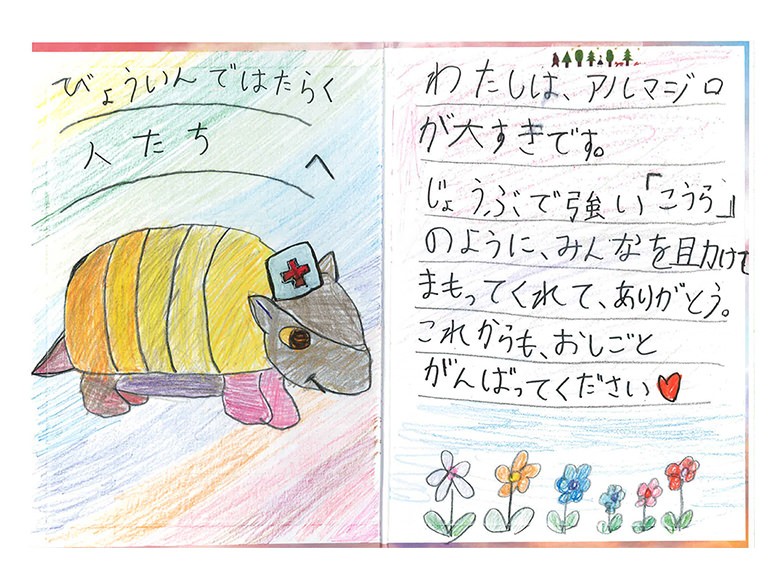 びょういんではたらく
人たち
へ
わたしは、アルマジロ
が大すきです。
じょうぶで強い「こうら」
のように、みんなを助けて
まもってくれて、ありがとう。
これからも、おしごと
がんばってください